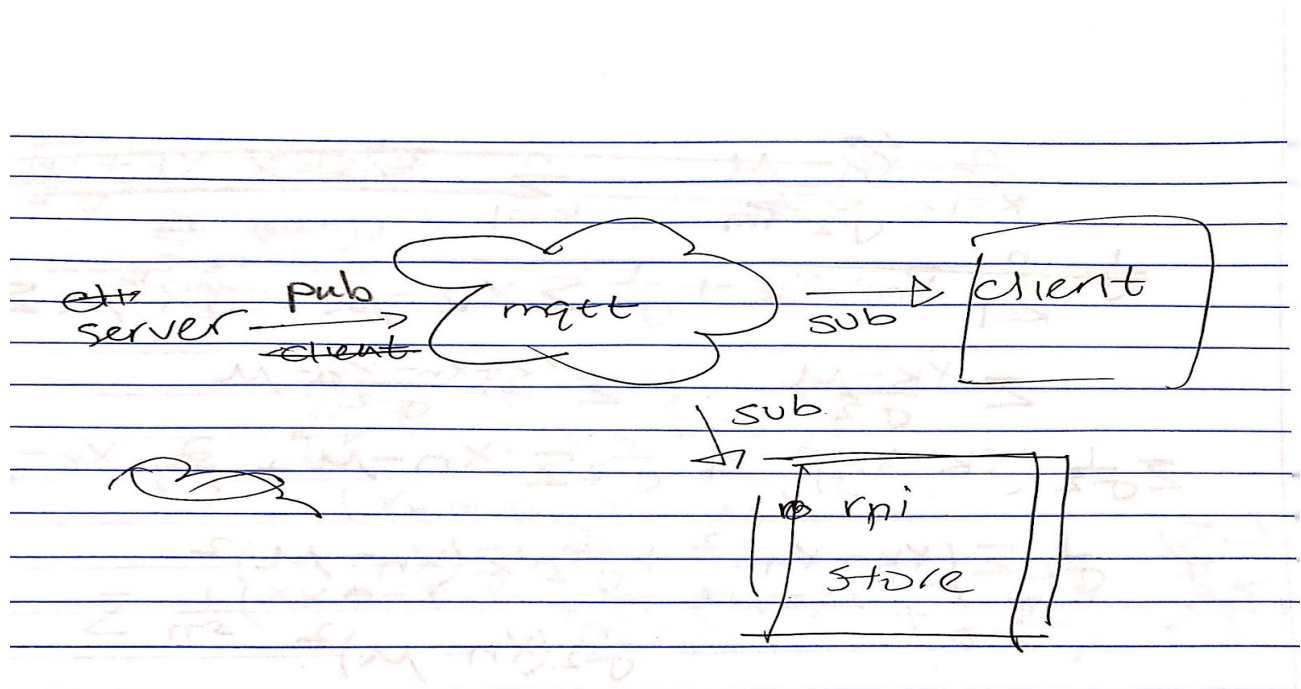 pub
server
client
mqtt
sub
client
sub
rpi
store